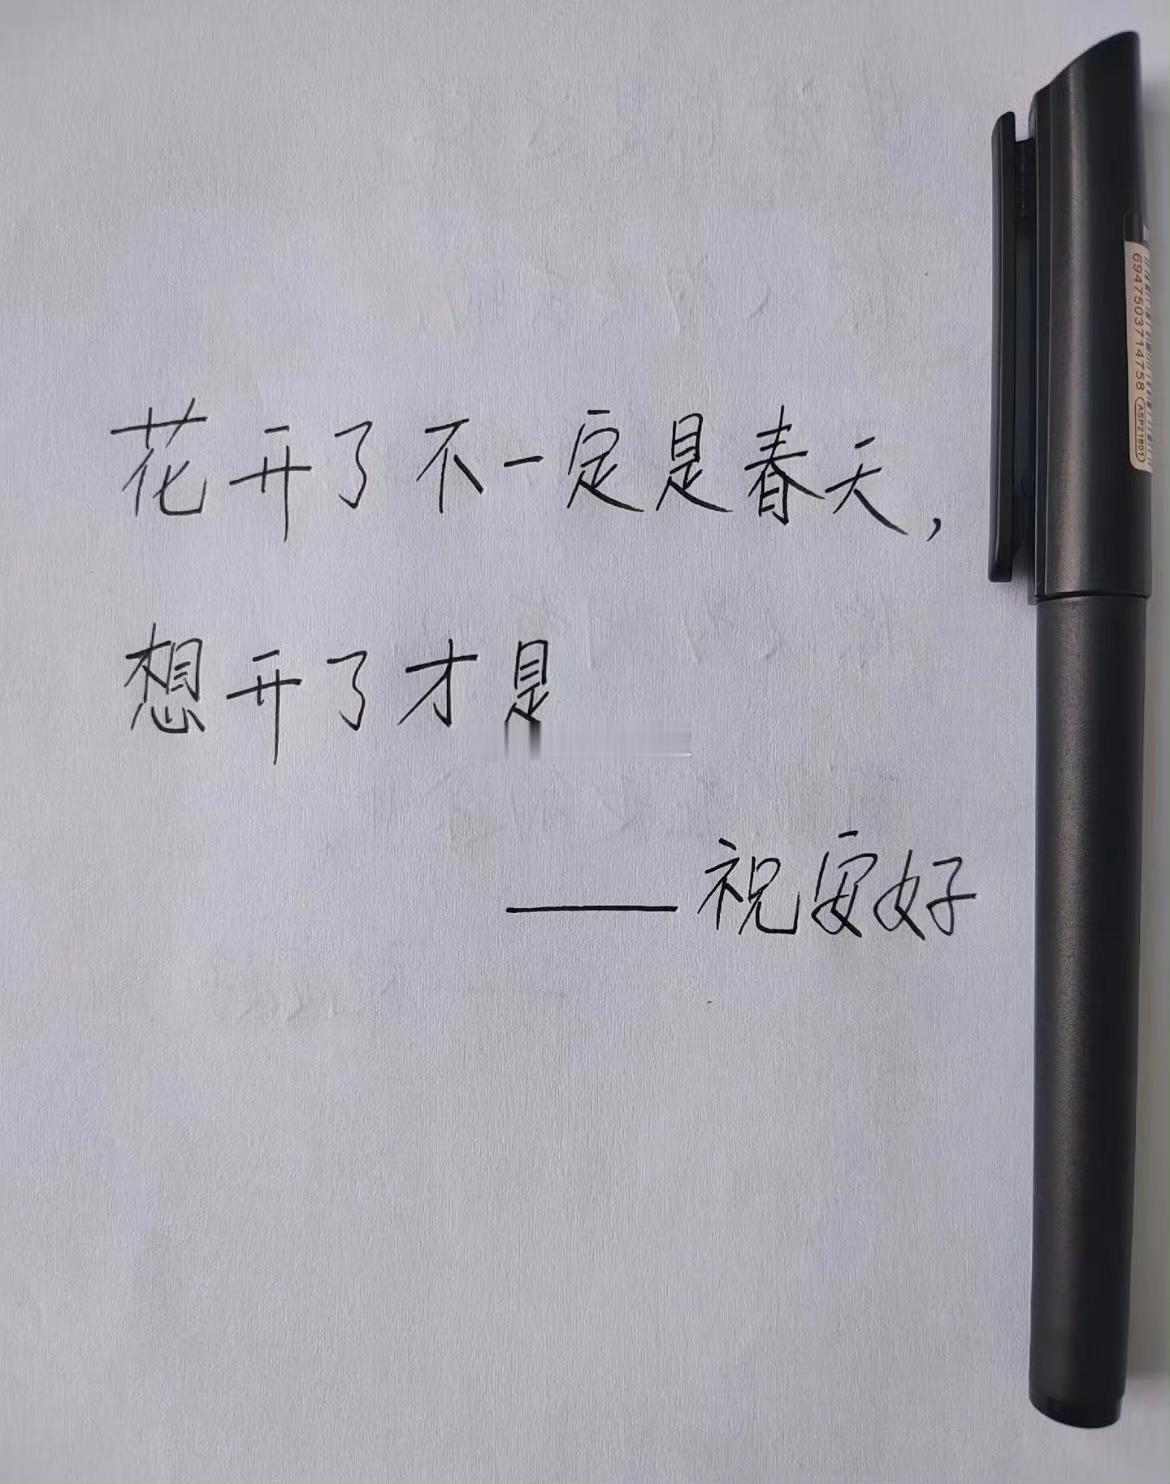 花开了不一定是春天，
想开了才是
——祝安好
6947503714758 ASP21801